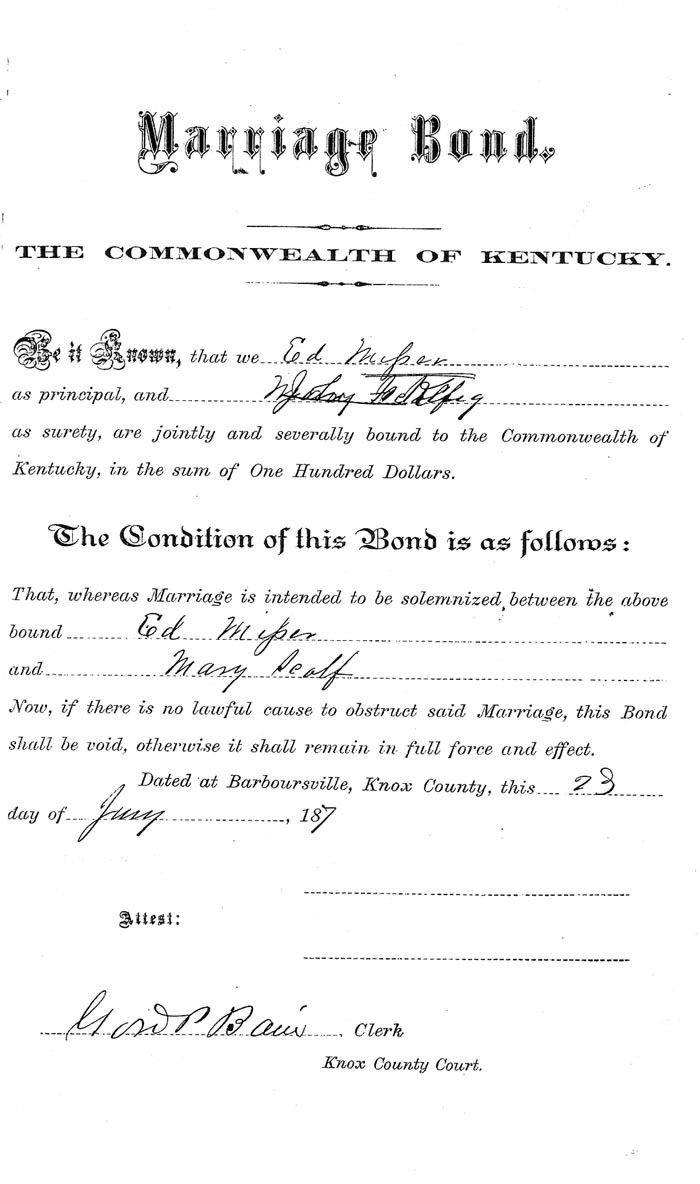 Marriage Bond.
THE COMMONWEALTH OF KENTUCKY.
Be it Known, that we Ed Misser
as principal, and
as surety, are jointly and severally bound to the Commonwealth of
Kentucky, in the sum of One Hundred Dollars.
The Condition of this Bond is as follows:
That, whereas Marriage is intended to be solemnized between the above
bound Ed Misser
and Mary Scalf
Now, if there is no lawful cause to obstruct said Marriage, this Bond
shall be void, otherwise it shall remain in full force and effect.
Dated at Barboursville, Knox County, this 23
day of , 187
Attest:
Clerk
Knox County Court.